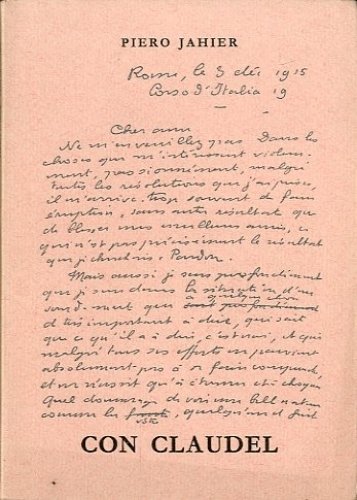 PIERO JAHIER
Rome, le 3 déc 1915
Corso d'Italia 19
Cher ami
Ne m'en veuillez pas Dans les
choses qui m'intéressent violem-
ment, passionnément, malgré
toutes les résolutions que j'ai prises,
il m'arrive trop souvent de faire
éruption, sans autre résultat que
de blesser mes meilleurs amis, ce
qui n'est pas précisément le résultat
que je cherchais. Pardon.
Mais aussi je sens profondément
que je suis dans la situation d'un
sourd-muet qui a quelque chose
de très important à dire, qui sait
que ce qu'il a à dire, c'est vrai, et qui
malgré tous ses efforts ne parvient
absolument pas à se faire comprendre,
et ne réussit qu'à étonner et à choquer
Quel dommage de voir une belle nature
comme la vôtre
CON CLAUDEL